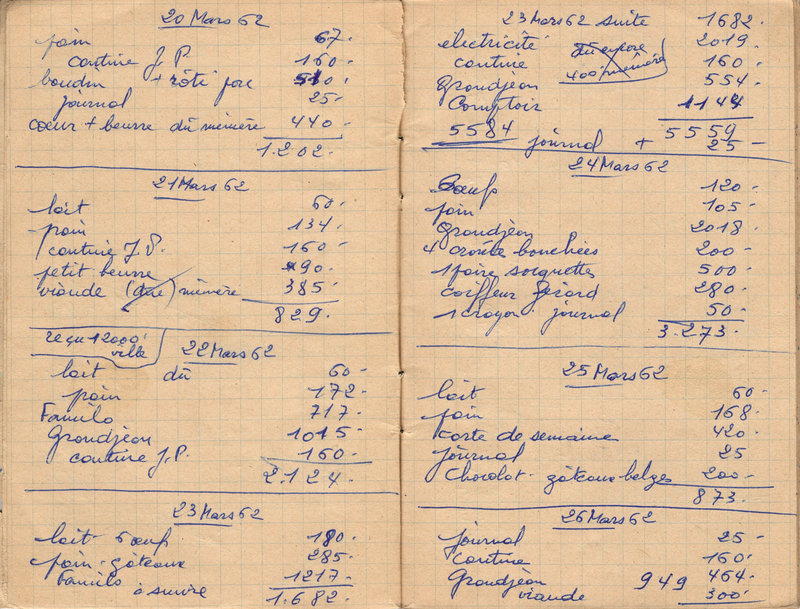 20 Mars 62
pain 67.
cantine J.P. 160.
boudin + rôti porc 510.
journal 25.
cœur + beurre dû mémère 440.
1.202.
21 Mars 62
lait 60.
pain 134.
cantine J.P. 160.
petit beurre 90.
viande (due) mémère 385.
829.
reçu 12000
ville
22 Mars 62
lait dû 60.
pain 172.
Familo 717.
Grondjéon 1015.
cantine J.P. 160.
2.124.
23 Mars 62
lait - 6 œuf 180.
pain - gâteaux 285.
Familo 1217.
à suivre 1.682.
23 Mars 62 suite 1682.
électricité 2019.
cantine 160.
400 mémère
Grondjéon 554.
Comptoir 1144
5584 5559
journal + 25
24 Mars 62
Bœuf 120.
pain 105.
Grondjéon 2018.
4 croûte bouchées 200.
1 paire soquettes 500.
coiffeur Gérard 280.
1 crayon. journal 50.
3.273.
25 Mars 62
lait 60.
pain 168.
carte de semaine 420.
journal 25
Chocolat - gâteaux belges 200.
873.
26 Mars 62
journal 25
cantine 160.
Grondjéon 949 464.
viande 300.